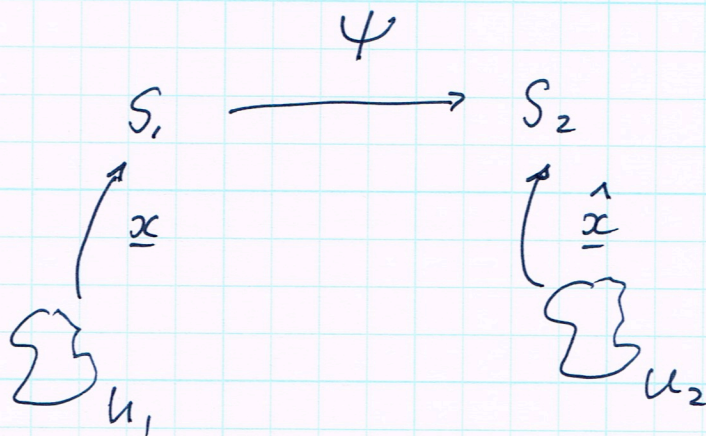 ψ
S₁ S₂
x x̂
U₁ U₂